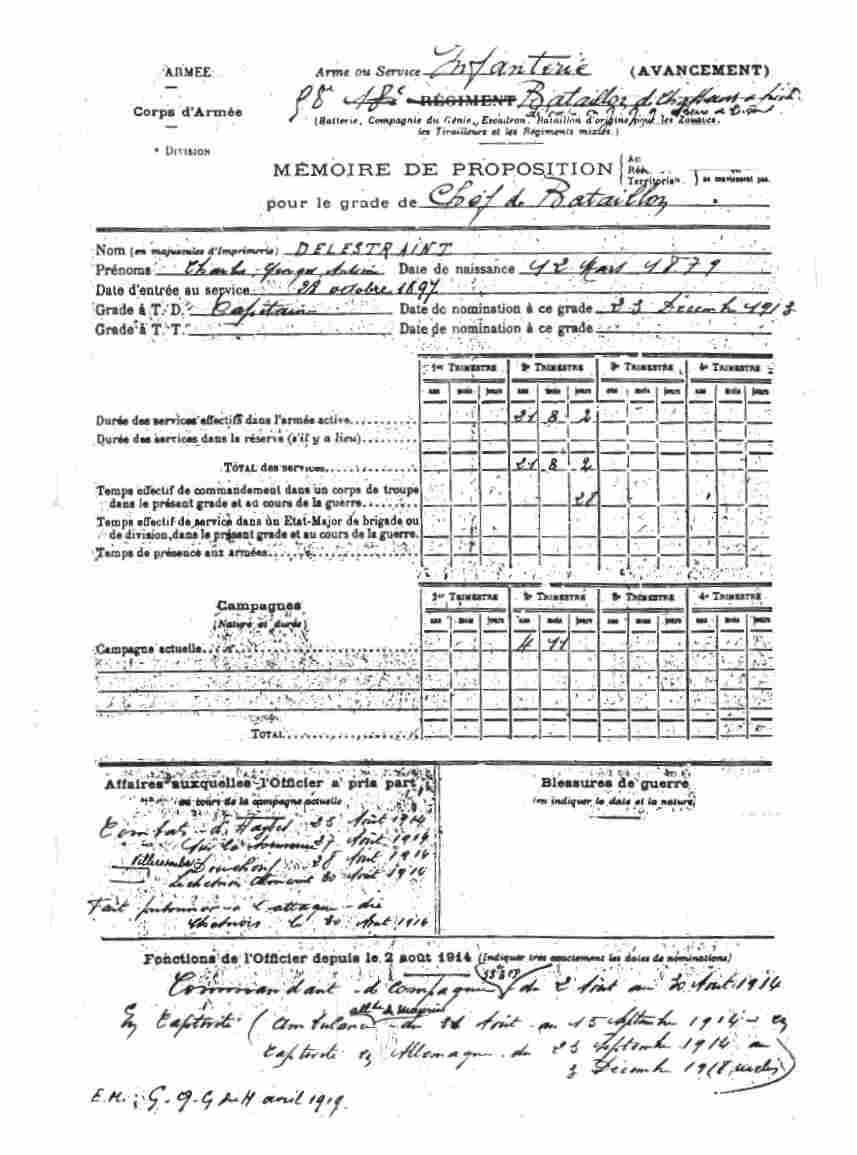 ARMÉE
Arme ou Service Infanterie (AVANCEMENT)
Corps d'Armée
58e RÉGIMENT Bataillon de Chasseurs à pied
(Batterie, Compagnie du Génie, Escadron. Bataillon d'origine pour les Zouaves,
les Tirailleurs et les Régiments mixtes.)
DIVISION
MÉMOIRE DE PROPOSITION { Ac.
Rés.
Territoriale. } ne conviennent pas.
pour le grade de Chef de Bataillon
Nom (en majuscules d'imprimerie) DELESTRAINT
Prénoms Charles Georges Antoine Date de naissance 12 Mars 1879
Date d'entrée au service 28 octobre 1897
Grade à T. D. Capitaine Date de nomination à ce grade 23 Décembre 1913
Grade à T. T. Date de nomination à ce grade
1er TRIMESTRE 2e TRIMESTRE 3e TRIMESTRE 4e TRIMESTRE
ans mois jours ans mois jours ans mois jours ans mois jours
Durée des services effectifs dans l'armée active 21 8 2
Durée des services dans la réserve (s'il y a lieu)
TOTAL des services 21 8 2
Temps effectif de commandement dans un corps de troupe
dans le présent grade et au cours de la guerre 28
Temps effectif de service dans un Etat-Major de brigade ou
de division, dans le présent grade et au cours de la guerre.
Temps de présence aux armées
Campagnes
(Nature et durée)
1er TRIMESTRE 2e TRIMESTRE 3e TRIMESTRE 4e TRIMESTRE
ans mois jours ans mois jours ans mois jours ans mois jours
Campagne actuelle 4 11
TOTAL
Affaires auxquelles l'Officier a pris part
au cours de la campagne actuelle
Combats d 25 Août 1914
Sur la 27 Août 1914
28 Août 1914
30 Août 1914
Fait prisonnier à l'attaque de
Chesnois le 30 Août 1914
Blessures de guerre
(en indiquer la date et la nature)
Fonctions de l'Officier depuis le 2 août 1914 (Indiquer très exactement les dates de nominations)
Commandant de Compagnie du 2 Août au 30 Août 1914
En Captivité (Ambulance du Août au 15 Septembre 1914 - en
Captivité en Allemagne du 23 Septembre 1914 au
3 Décembre 1918 inclus)
E.M. : G. Q. G. avril 1919.